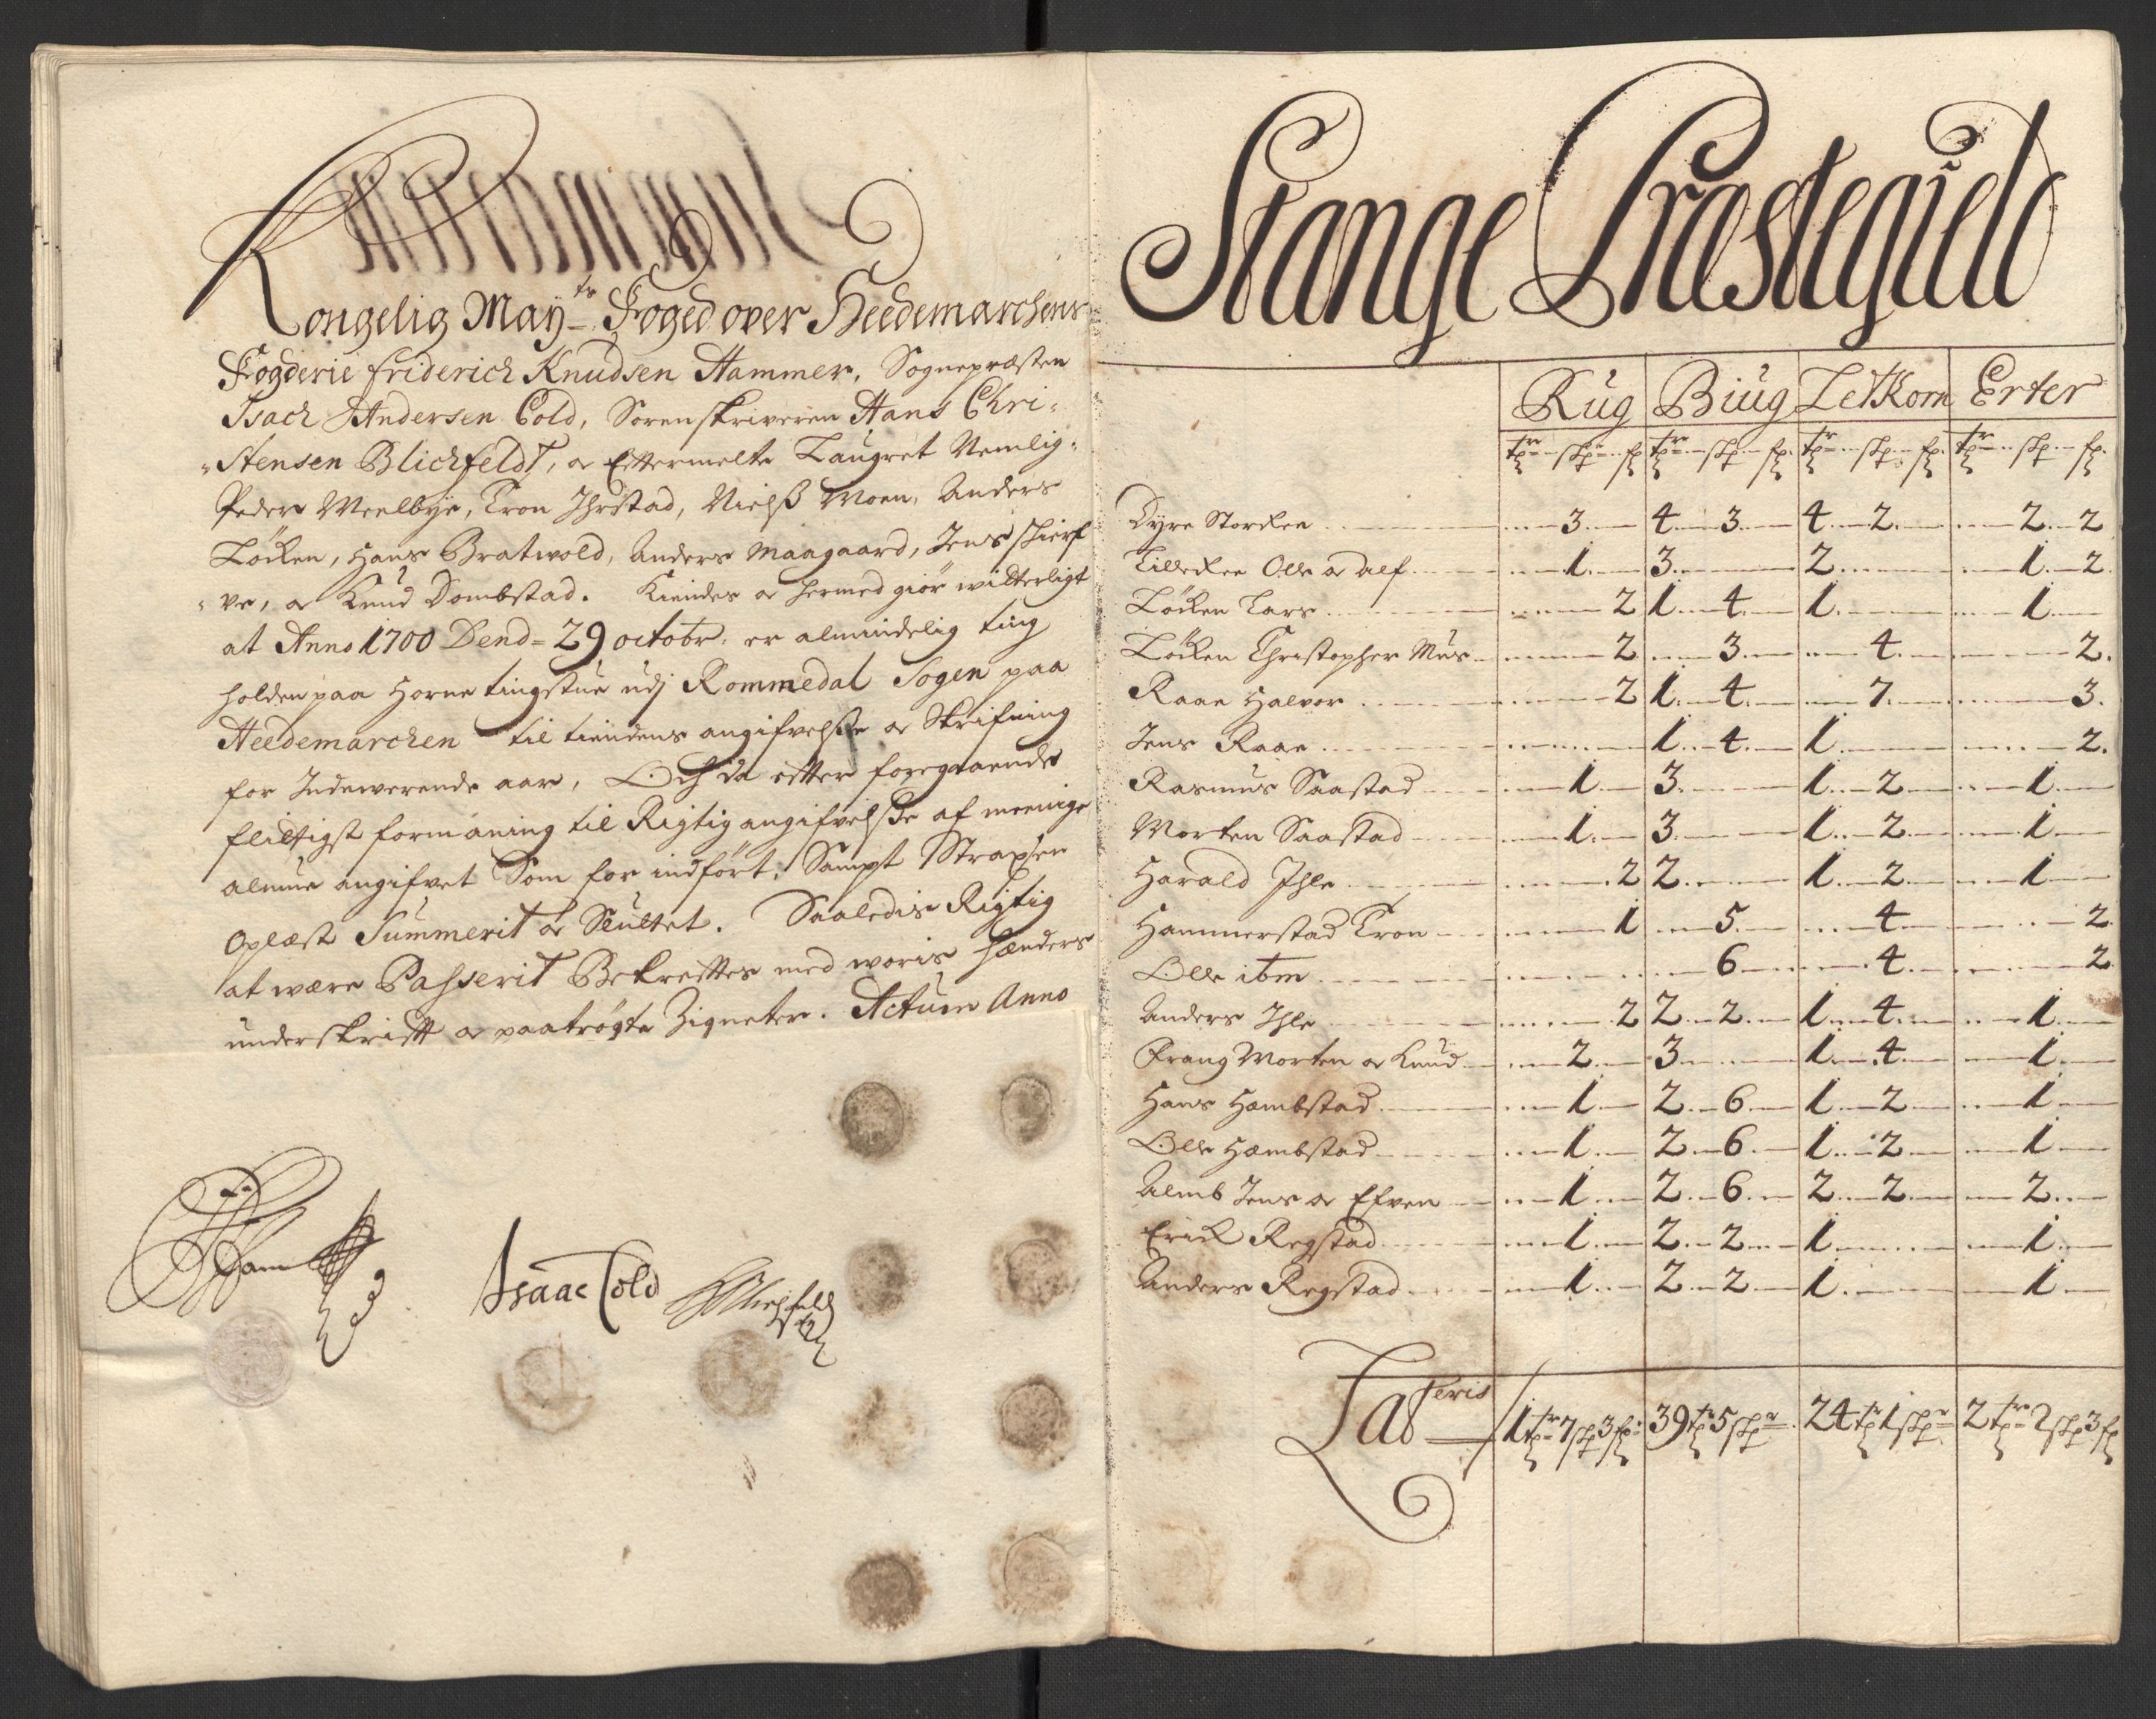 Kongelig Mayts Foged over Heedemarchens
Fogderie Friderich Knudsen Hammer, Sognepræsten
Isach Andersen Cold, Sorenskriveren Hans Chri-
-stensen Blichfeldt, oc Efftermelte Laugret Nemlig-
Peder Meelbye, Tron Ihrstad, Nielß Moen, Anders
Løcken, Hans Bratwold, Anders Maagaard, Jens Skierf
-ve, oc Knud Dombstad. Kiendes oc hermed giør witterligt
at Anno 1700 Dend = 29 octobr. er almindelig ting
holden paa Horne tingstue udj Rommedal Sogen paa
Heedemarchen til tiendens angifvelse oc Skrifning
for Indewerende aar, Och da effter foregaaende
flittigst formaning til Rigtig angifvelse af meenige
almue angifvet Som for indført, Sampt Straxsen
Oplæst Summerit oc Sluttet. Saaledis Rigtig
at være Passerit Bekreffter med woris hænders
underskrifft oc paatrøgte Zigneter. Actum Anno
Isaac Cold
HBlichfeldt
Stange Præstegield
Rug Biug Letkorn Erter
tr skp fr tr skp fr tr skp fr tr skp fr
Dyre Storcken 3 4 3 4 2 2 2
Lillecken Olle oc Alf 1 3 2 1 2
Løcken Lars 2 1 4 1 1
Løcken Christopher Mus 2 3 4 2
Raae Halvor 2 1 4 7 3
Jens Raae 1 4 1 2
Rasmus Saastad 1 3 1 2 1
Morten Saastad 1 3 1 2 1
Harald Ihle 2 2 1 2 1
Hammerstad Tron 1 5 4 2
Olle ibm 6 4 2
Anders Ihle 2 2 2 1 4 1
Frang Morten oc Knud 2 3 1 4 1
Hans Hæmbstad 1 2 6 1 2 1
Olle Hæmbstad 1 2 6 1 2 1
Almb Jens oc Efven 1 2 6 2 2 2
Erick Regstad 1 2 2 1 1
Anders Regstad 1 2 2 1 1
Lateris 1 tr 7 skp 3 fr 39 tr 5 skp 24 tr 1 skp 2 tr 2 skp 3 fr